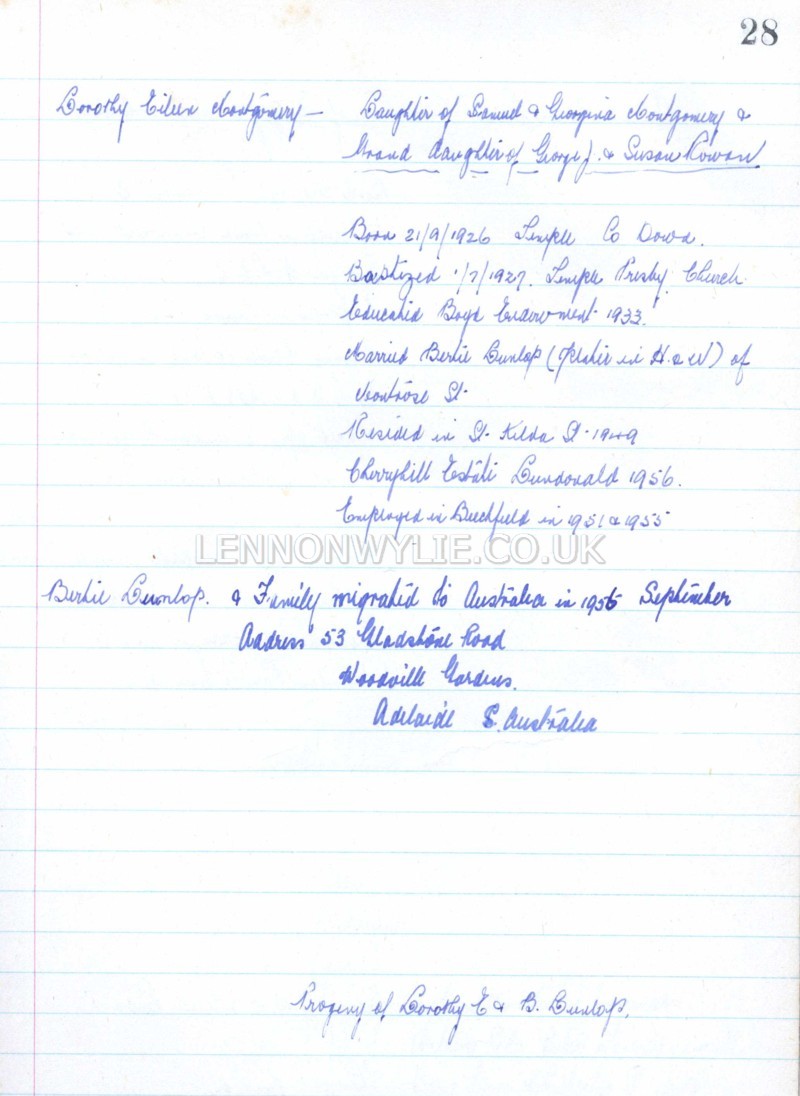 28
Dorothy Eileen Montgomery — Daughter of Samuel & Georgina Montgomery &
Grand daughter of George J. & Susan Rowan
Born 21/9/1926 Temple Co Down.
Baptized 1/7/1927. Temple Presby. Church
Educated Boyd Endowment 1933.
Married Bertie Dunlop (Plater in H. & W) of
Montrose St.
Resided in St. Kilda St. 1949
Cherryhill Estate Dundonald 1956.
Employed in Beechfield in 1951 & 1955
LENNONWYLIE.CO.UK
Bertie Dunlop. & Family migrated to Australia in September
Address 53 Gladstone Road
Woodville Gardens.
Adelaide S. Australia
Progeny of Dorothy E & B. Dunlop.